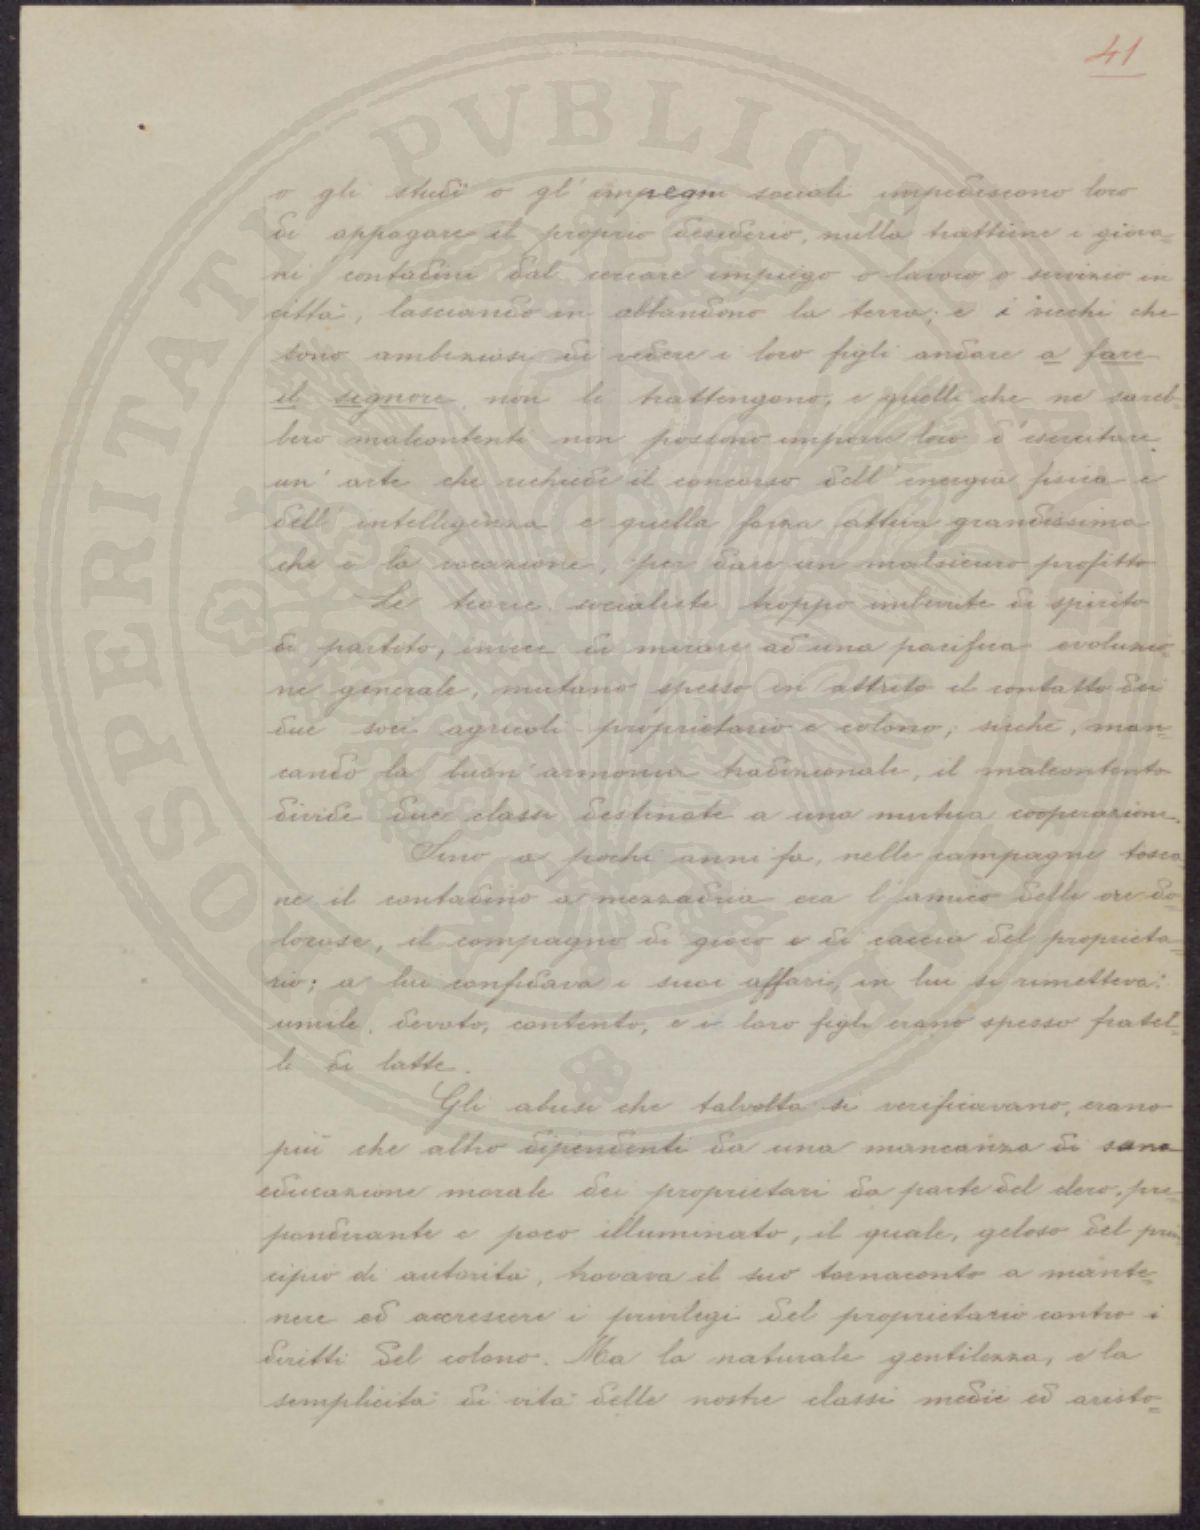 41
o gli studî o gl'impegni sociali impediscono loro
di appagare il proprio desiderio, nulla trattiene i giova=
ni contadini dal cercare impiego o lavoro o servizio in
città, lasciando in abbandono la terra; e i vecchi che
sono ambiziosi di vedere i loro figli andare a fare
il signore, non li trattengono, e quelli che ne sareb=
bero malcontenti non possono imporre loro d'esercitare
un'arte che richiede il concorso dell'energia fisica e
dell'intelligenza e quella forza attiva grandissima
che è la vocazione, per dare un malsicuro profitto
Le teorie socialiste troppo imbevute di spirito
di partito, invece di mirare ad una pacifica evoluzio=
ne generale, mutano spesso in attrito il contatto dei
due soci agricoli proprietario e colono; sicchè, man=
cando la buon'armonia tradizionale, il malcontento
divide due classi destinate a una mutua cooperazione.
Sino a pochi anni fa, nelle campagne tosca
ne il contadino a mezzadria era l'amico delle ore do=
lorose, il compagno di gioco e di caccia del proprieta=
rio; a lui confidava i suoi affari, in lui si rimetteva:
umile, devoto, contento, e i loro figli erano spesso fratel=
li di latte.
Gli abusi che talvolta si verificavano, erano
più che altro dipendenti da una mancanza di sana
educazione morale dei proprietari da parte del clero, pre=
ponderante e poco illuminato, il quale, geloso del prin
cipio di autorità, trovava il suo tornaconto a mante=
nere ed accrescere i privilegi del proprietario contro i
diritti del colono. Ma la naturale gentilezza, e la
semplicità di vita delle nostre classi medie ed aristo=
PROSPERITATI PUBLICAE